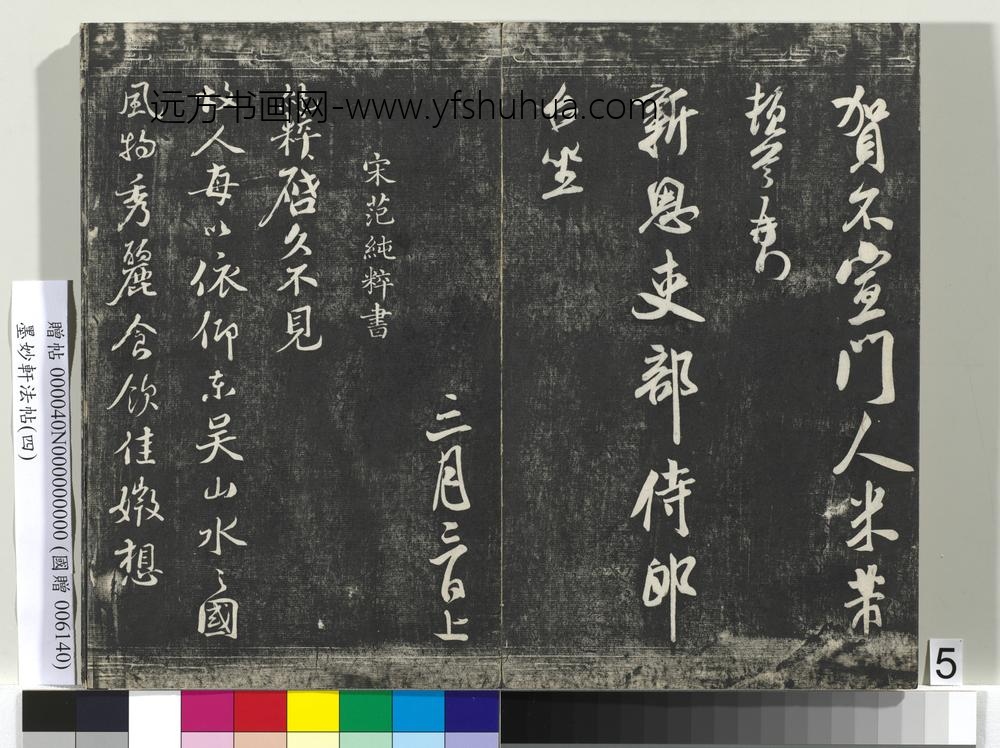 賀不宣門人米芾
頓首
新恩吏部侍郎
台坐
三月三日上
宋范純粹書
純粹啓久不見
故人每以依仰東吴山水之國
風物秀麗食飲佳嫩想
远方书画网-www.yfshuhua.com
贈帖 000040N000000000 (國贈 006140)
墨妙軒法帖(四)
5